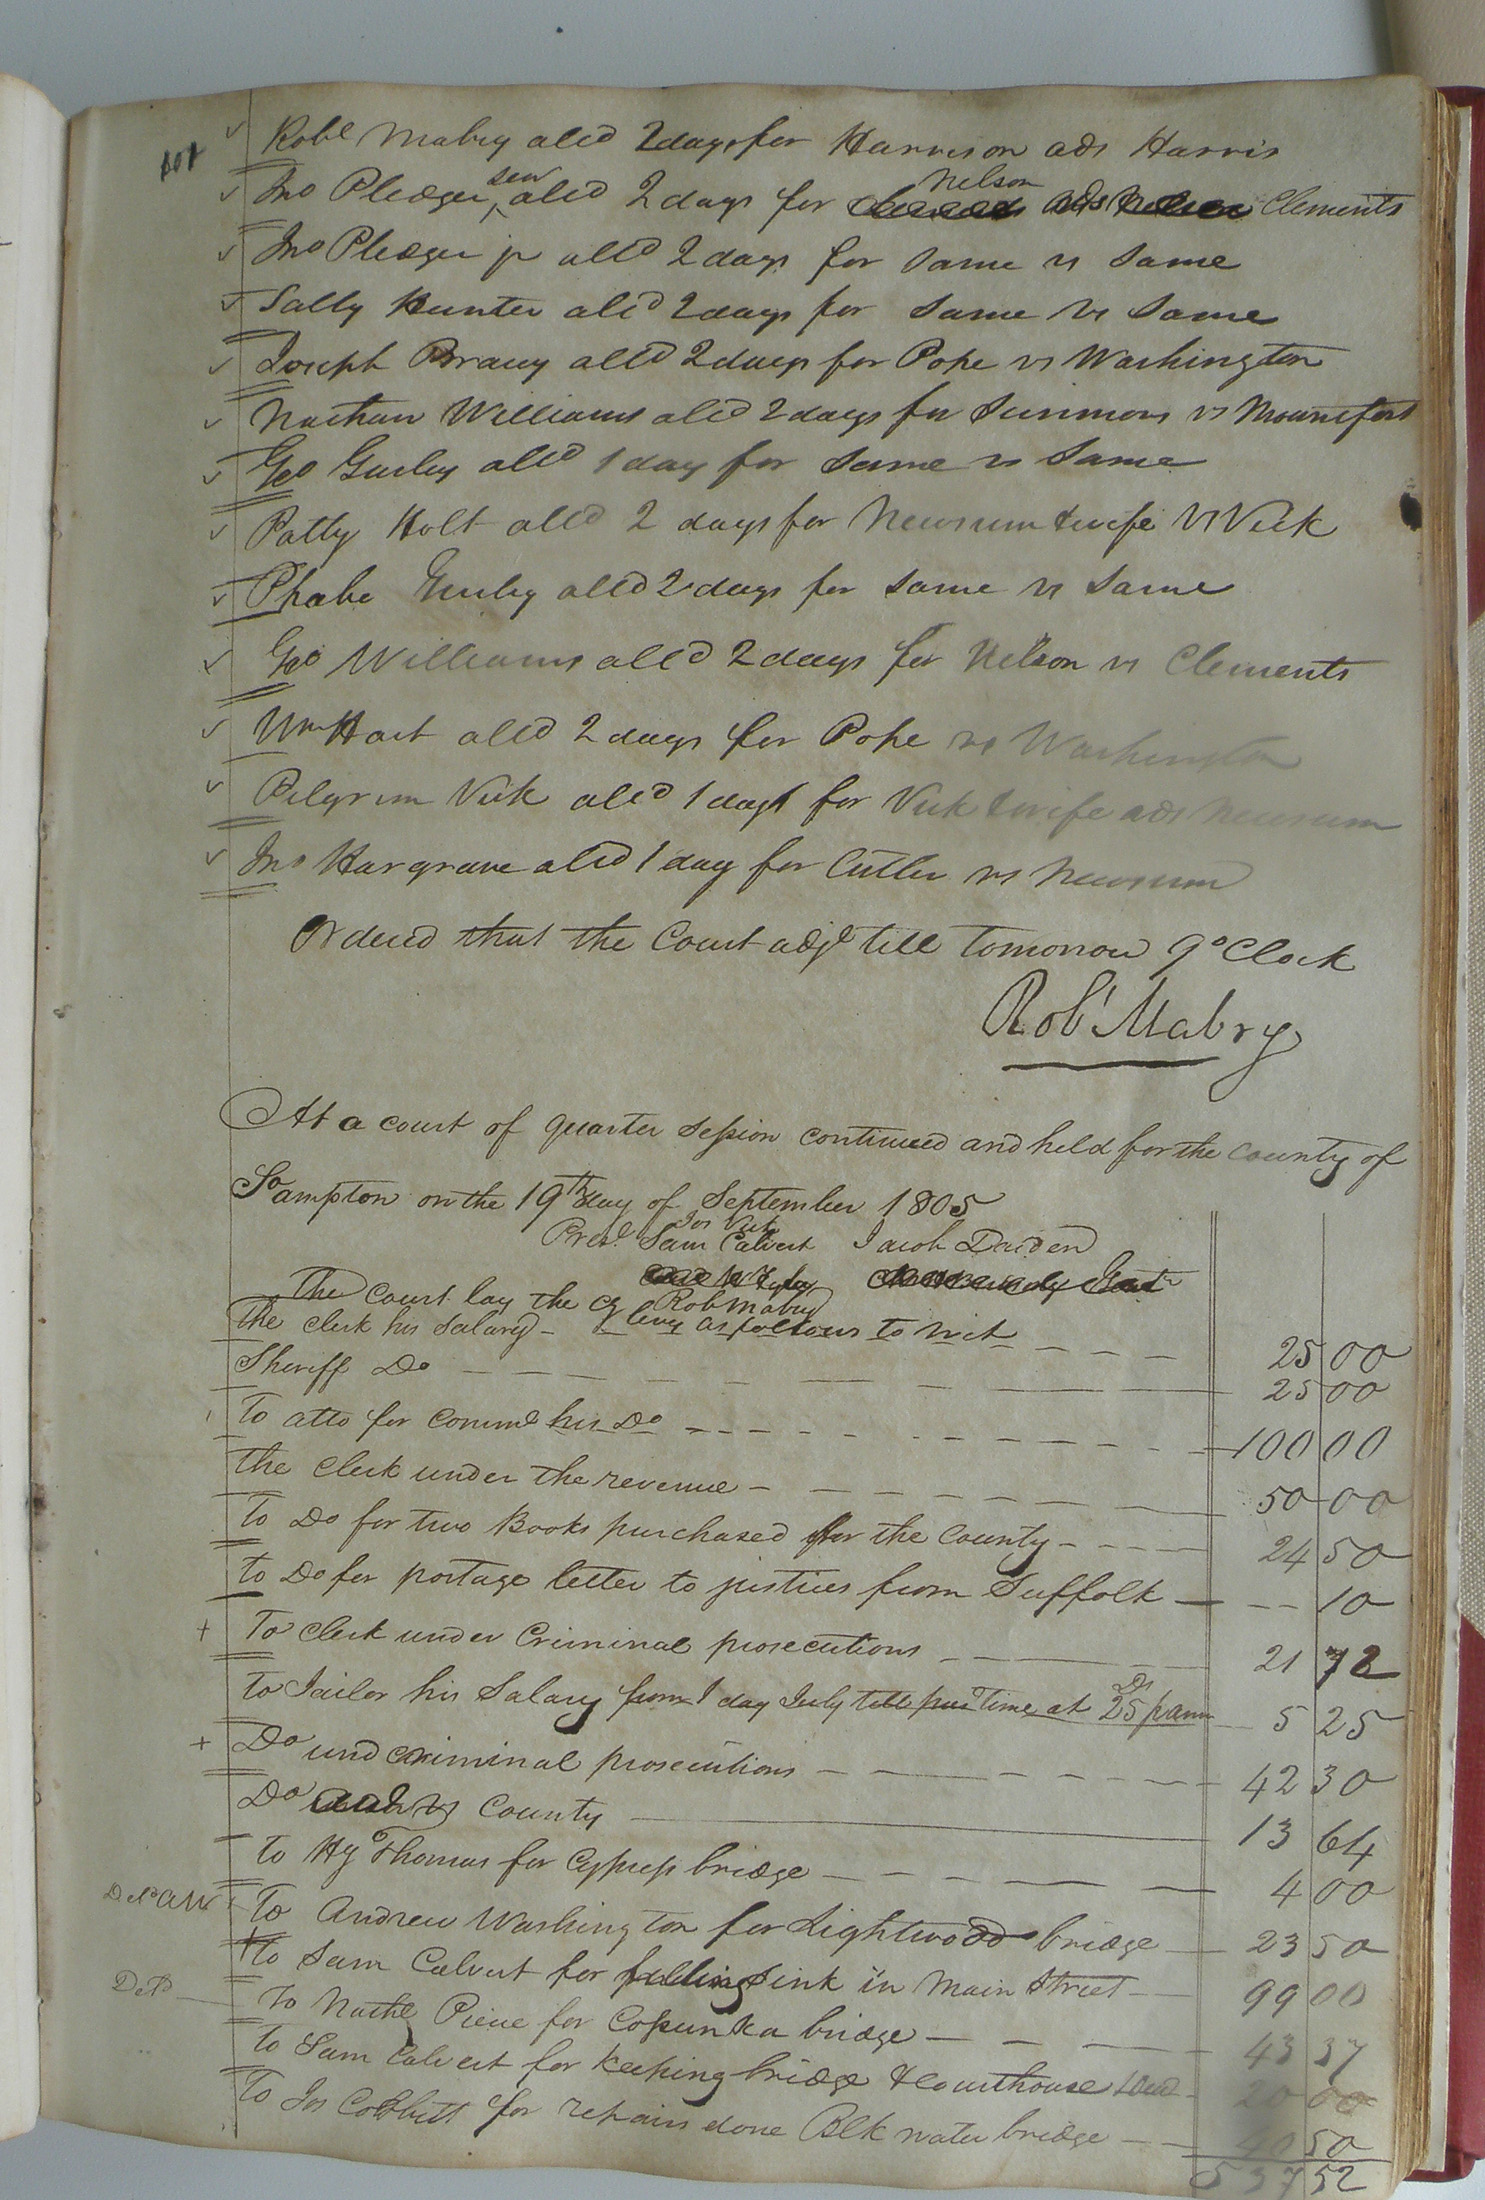 Robt Mabry alld 2 days for Harrison ads Harris
Jno Pledger senr alld 2 days for Nelson ads Clements
Jno Pledger jr alld 2 days for same vs same
Sally Hunter alld 2 days for same vs same
Joseph Braxy alld 2 days for Pope vs Washington
Nathan Williams alld 2 days for Simmons vs Mountfort
Geo Gurley alld 1 day for same vs same
Patty Holt alld 2 days for Newsum & wife vs Vick
Phebe Gurley alld 2 days for same vs same
Geo Williams alld 2 days for Nelson vs Clements
Wm Hart alld 2 days for Pope vs Washington
Pilgrim Vick alld 1 day for Vick & wife ads Newsum
Jno Hargrave alld 1 day for Cutler vs Newsum
Ordered that the Court adjd till tomorrow 9 oClock
Robt Mabry
At a court of quarter Session continued and held for the county of
So ampton on the 19th day of September 1805
Jos Vick
Prest. Sam Calvert Jacob Darden
Rob Mabry
The Court lay the Cy levy as follows to wit
The clerk his Salary - 25 00
Sheriff Do 25 00
To atto for Commd his Do 100 00
The Clerk under the revenue - 50 00
To Do for two Books purchased for the County - 24 50
to Do for postage letter to justices from Suffolk - 10
To Clerk under Criminal prosecutions 21 72
to Jailor his Salary from 1 day July till this time at 25 Ds p ann 5 25
Do und criminal prosecutions - 42 30
Do vs County 13 64
To Hy Thomas for Cypress bridge - 4 00
To Andrew Washington for Lightwood bridge 23 50
to Sam Calvert for filling Sink in Main Street - 99 00
To Nathl Pierce for Cosunka bridge - 43 37
To Sam Calvert for keeping bridge & Courthouse 20 00
To Jos Cobbitt for repairs done Blk water bridge - 40 50
537 52